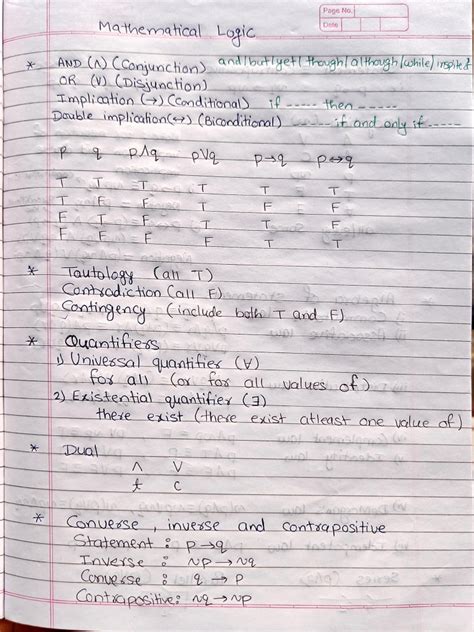 Page No.
Date
Mathematical Logic
* AND (∧) (Conjunction) and/but/yet/though/although/while/inspite of
OR (V) (Disjunction)
Implication (→) (Conditional) if ----- then -----
Double implication (↔) (Biconditional) ----- if and only if -----
p q p∧q p∨q p→q p↔q
T T T T T T
T F F T F F
F T F T T F
F F F F T T
* Tautology (all T)
Contradiction (all F)
Contingency (include both T and F)
* Quantifiers
1) Universal quantifier (∀)
for all (or for all values of)
2) Existential quantifier (∃)
there exist (there exist atleast one value of)
* Dual
∧ V
t c
* Converse, inverse and contrapositive
Statement : p→q
Inverse : ~p→~q
Converse : q → p
Contrapositive: ~q → ~p